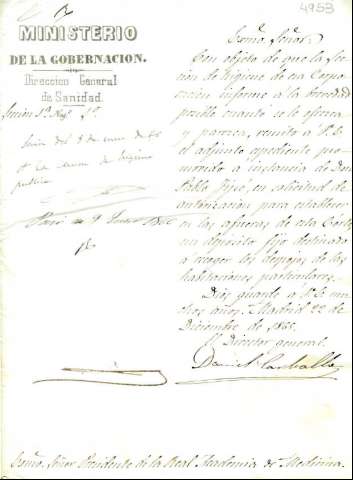 4953
MINISTERIO
DE LA GOBERNACION.
Direccion General
de Sanidad.
Seccion 1ª Negº 1º
Excmo. Señor.
Con objeto de que la Sec-
cion de higiene de esa Corpo-
racion informe á la brevedad
posible cuanto se le ofrezca
y parezca, remito á V.E.
el adjunto expediente pro-
movido á instancia de Don
Pablo en solicitud de
autorizacion para establecer
en las afueras de esta Córte
un depósito fijo destinado
á recoger los despojos de las
habitaciones particulares.
Dios guarde á V.E. mu-
chos años. Madrid 22 de
Diciembre de 1865.
El Director general.
Daniel Carballo
de Enero de
la de higiene
publica
9 Enero
Excmo. Señor Presidente de la Real Academia de Medicina.